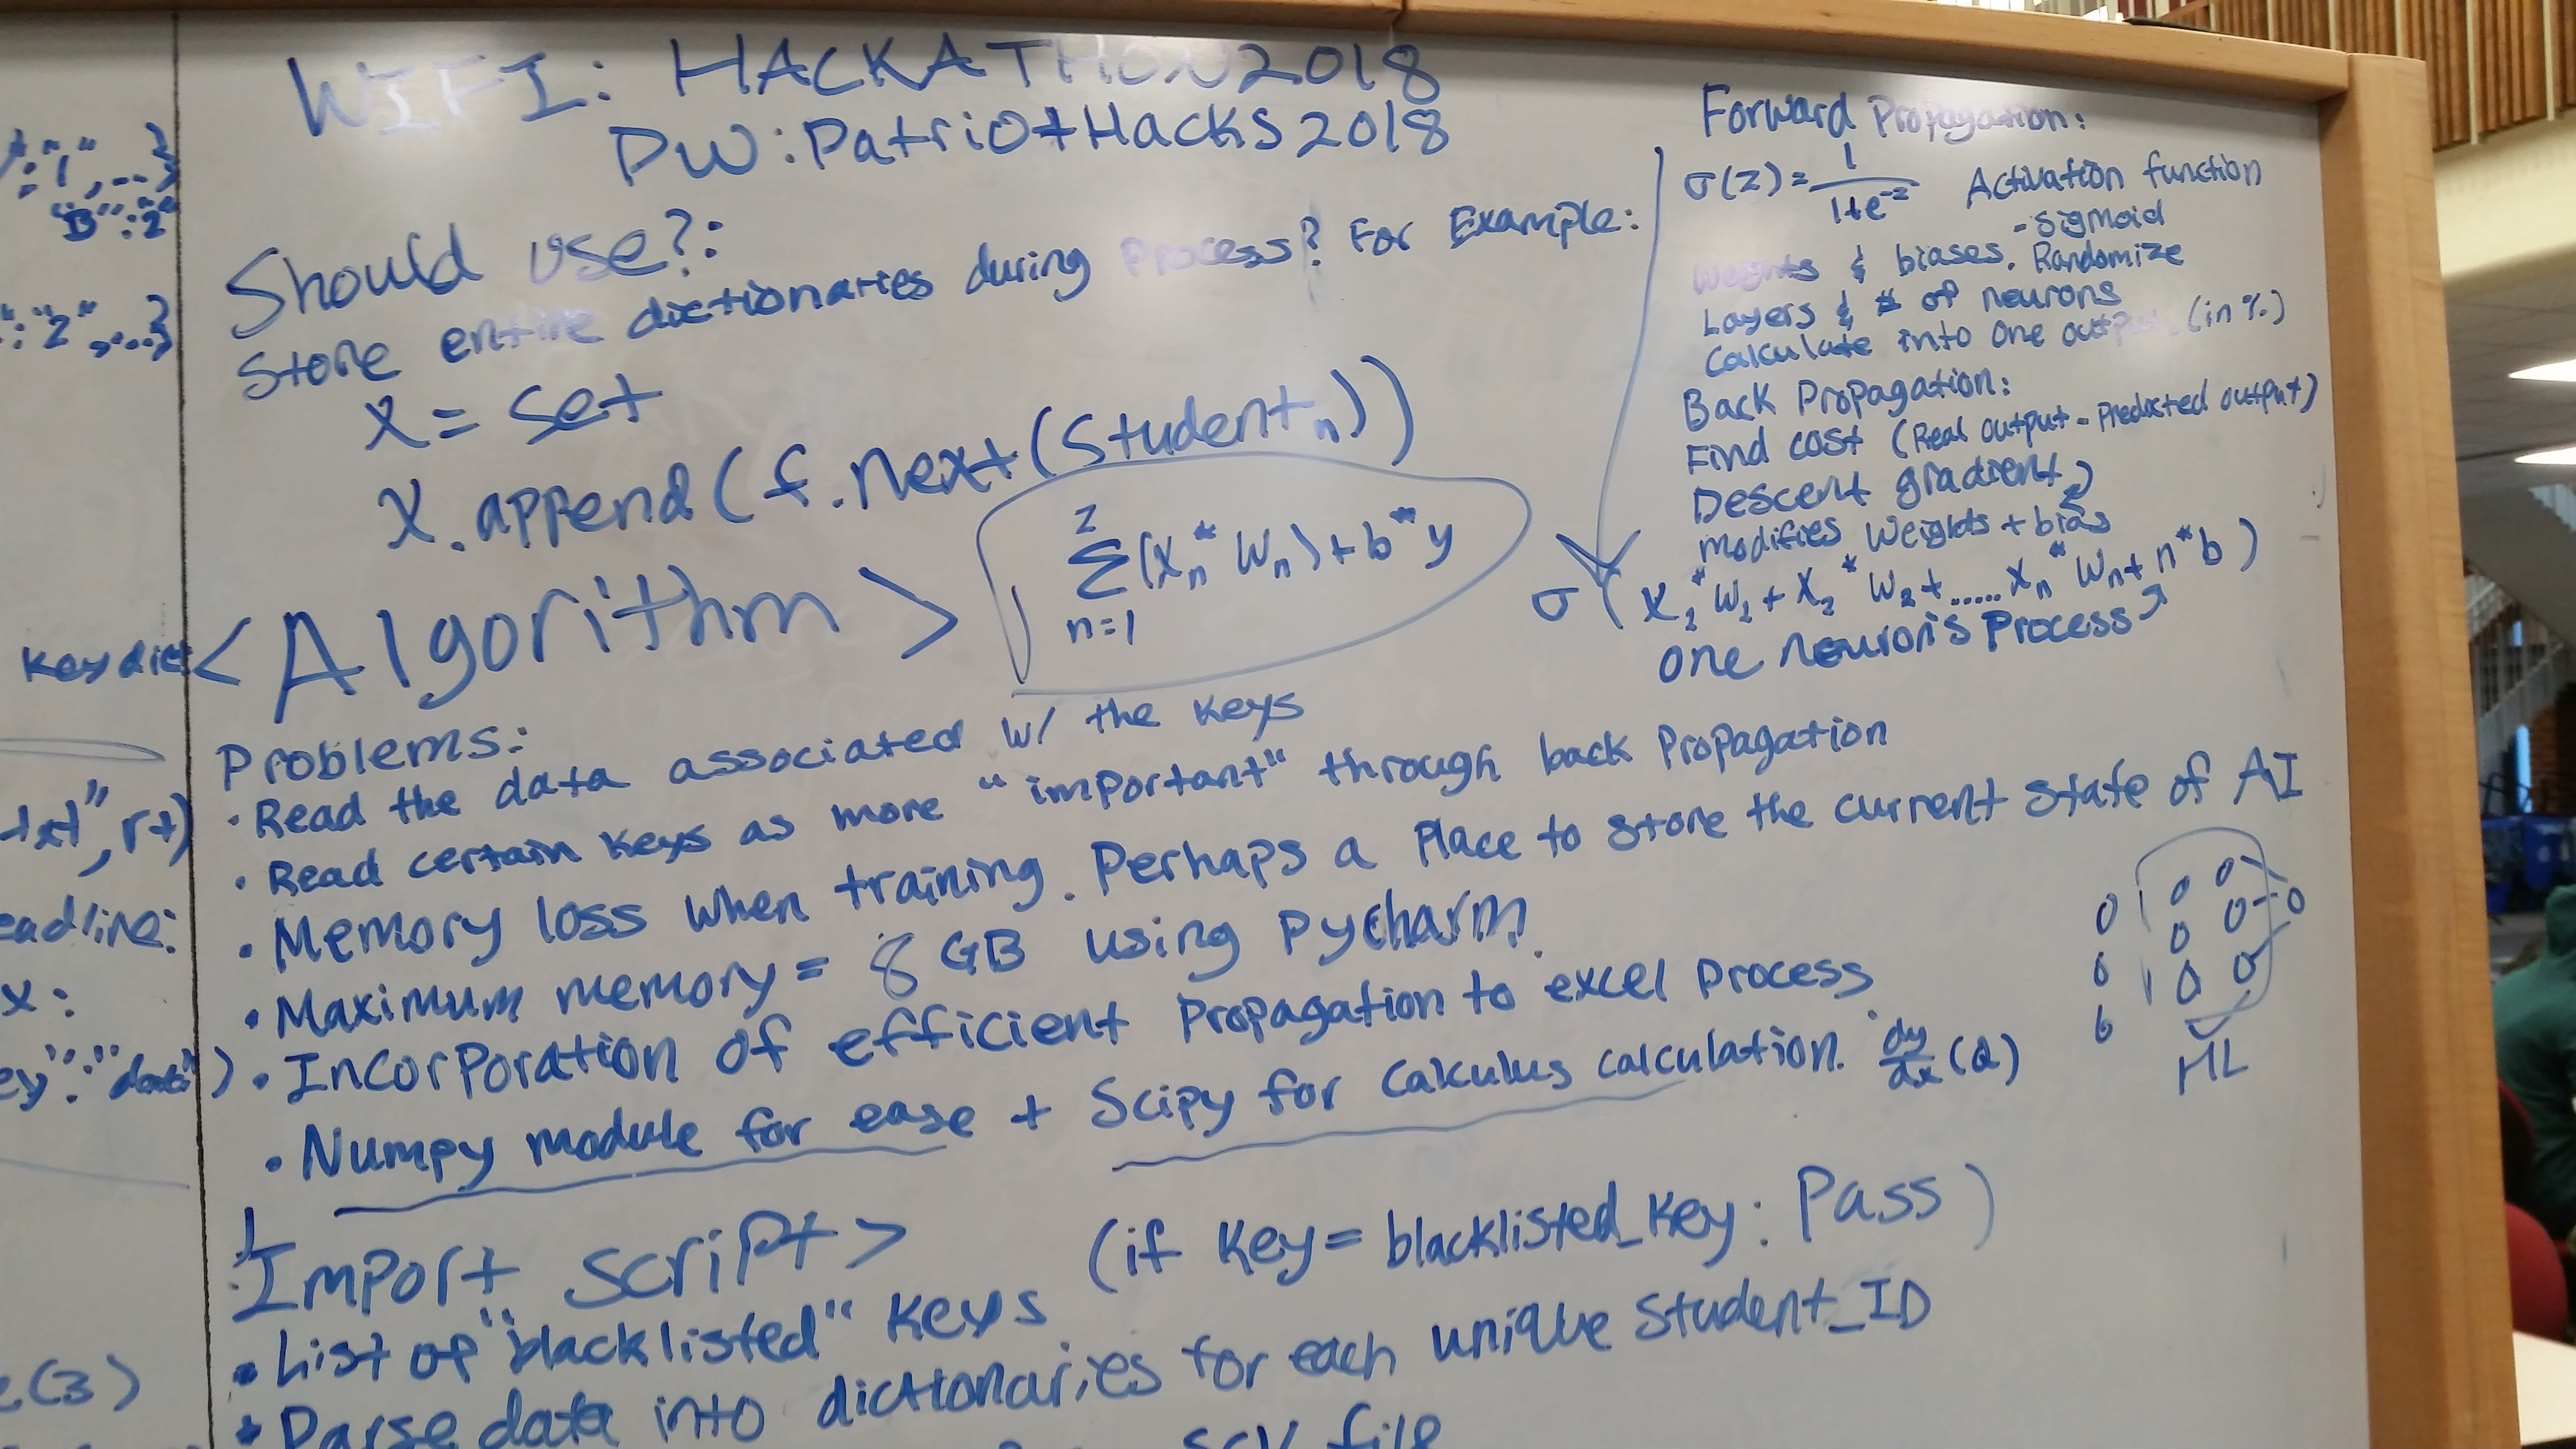 WIFI: HACKATHON2018
PW: PatriotHacks2018
Should use?:
Store entire dictionaries during process? For Example:
X = set
X.append(f.next(Student n))
<Algorithm>
z
Σ(Xn * Wn) + b * y
n=1
Problems:
· Read the data associated w/ the keys
· Read certain keys as more "important" through back propagation
· Memory loss when training. Perhaps a place to store the current state of AI
· Maximum memory = 8 GB using Pycharm.
· Incorporation of efficient propagation to excel process
· Numpy module for ease + Scipy for calculus calculation. dy/dx (d)
Import script> (if key = blacklisted_key: Pass)
· List of "blacklisted" keys
· Parse data into dictionaries for each unique Student_ID
file
Forward Propagation:
σ(z) = 1/1+e^-z Activation function
- sigmoid
Weights & biases. Randomize
Layers & # of neurons
Calculate into one output (in %)
Back Propagation:
Find cost (Real output - Predicted output)
Descent gradient
modifies weights + bias
σ(X1 * W1 + X2 * W2 + ..... Xn * Wn + n * b)
one neuron's process
HL
":"1", --}
"B":"2"
":"2", ...}
Key dict
txt", r+)
eadline:
x:
ey":"data")
(3)